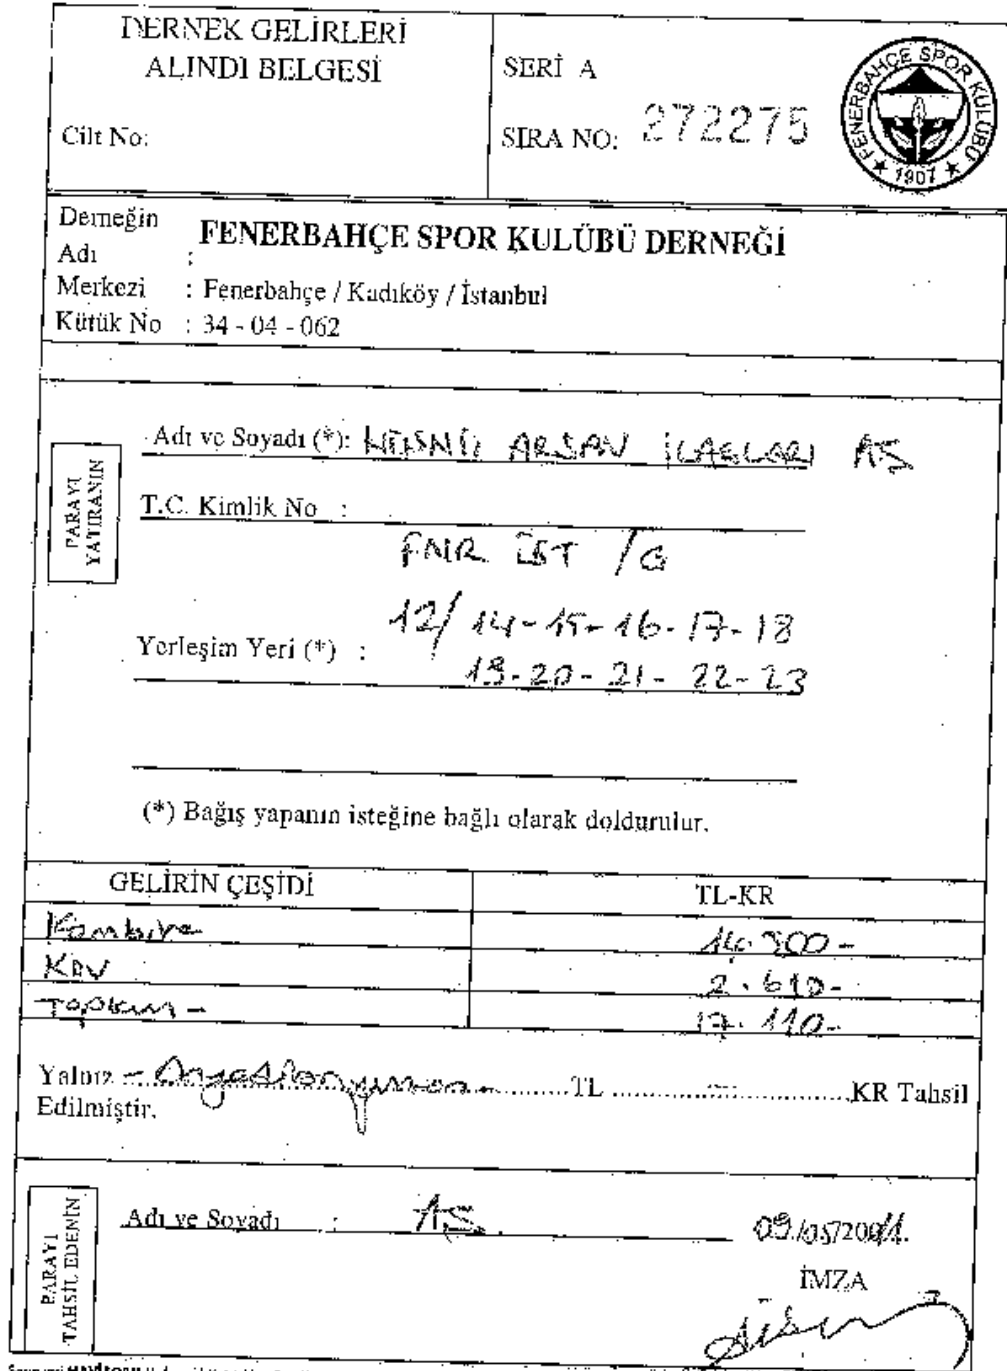 DERNEK GELİRLERİ
ALINDI BELGESİ
Cilt No:
SERİ A
SIRA NO: 272275
FENERBAHÇE SPOR KULÜBÜ
★ 1907 ★
Derneğin
Adı :
FENERBAHÇE SPOR KULÜBÜ DERNEĞİ
Merkezi : Fenerbahçe / Kadıköy / İstanbul
Kütük No : 34 - 04 - 062
PARAYI
YATIRANIN
Adı ve Soyadı (*): HÜSNÜ ARSAN İLAÇLARI AŞ
T.C. Kimlik No :
FNR ÜST /G
12/ 14-15-16-17-18
Yerleşim Yeri (*) :
19-20-21-22-23
(*) Bağış yapanın isteğine bağlı olarak doldurulur.
GELİRİN ÇEŞİDİ TL-KR
Kombine 14.500-
KDV 2.610-
Toplam - 17.110-
Yalnız - Onyedibinyüzon- TL KR Tahsil
Edilmiştir.
PARAYI
TAHSİL EDENİN
Adı ve Soyadı : A.S. 09/05/2011.
İMZA